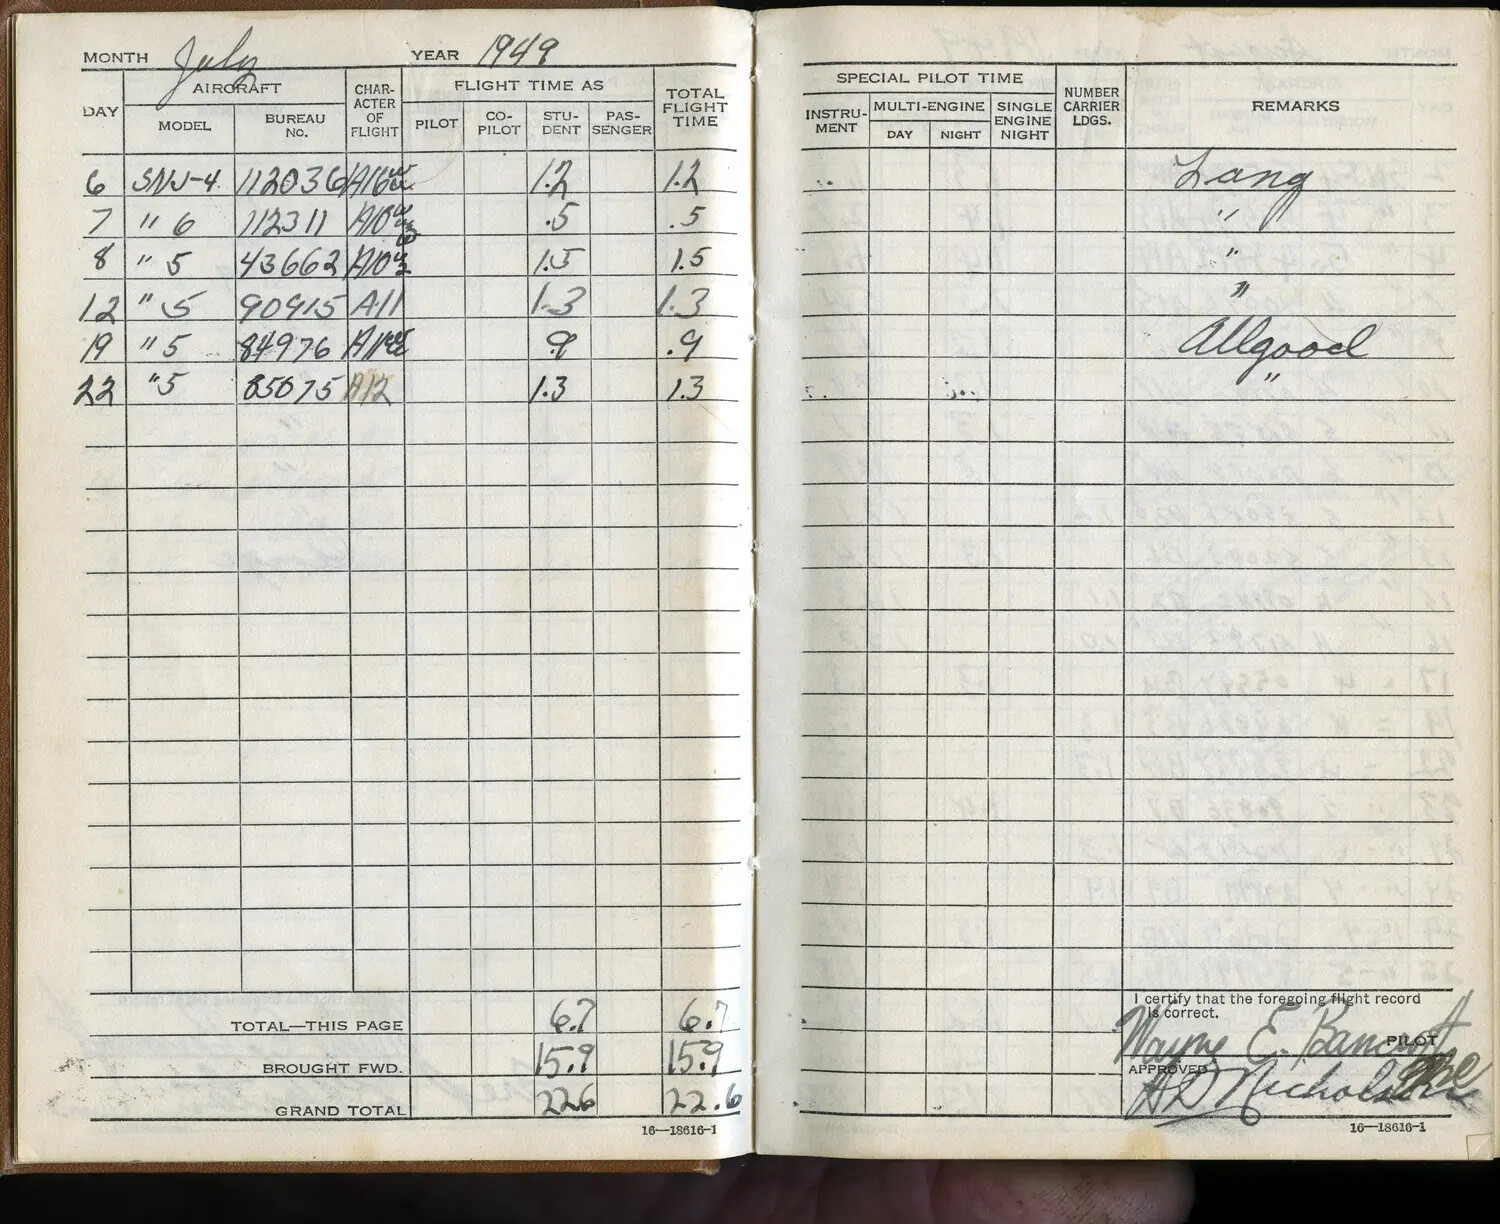 MONTH July YEAR 1949
DAY AIRCRAFT CHAR-ACTER OF FLIGHT FLIGHT TIME AS TOTAL FLIGHT TIME
MODEL BUREAU NO. PILOT CO-PILOT STU-DENT PAS-SENGER
6 SNJ-4 112036 1.2 1.2
7 " 6 112311 .5 .5
8 " 5 43662 1.5 1.5
12 " 5 90915 A11 1.3 1.3
19 " 5 84976 .9 .9
22 " 5 85075 A12 1.3 1.3
TOTAL—THIS PAGE 6.7 6.7
BROUGHT FWD. 15.9 15.9
GRAND TOTAL 22.6 22.6
16—18616-1
SPECIAL PILOT TIME NUMBER CARRIER LDGS. REMARKS
INSTRU-MENT MULTI-ENGINE SINGLE ENGINE NIGHT
DAY NIGHT
Lang
"
"
"
Allgood
"
I certify that the foregoing flight record
is correct.
Wayne E. Bancroft PILOT
APPROVED
H D Nicholson
16—18616-1